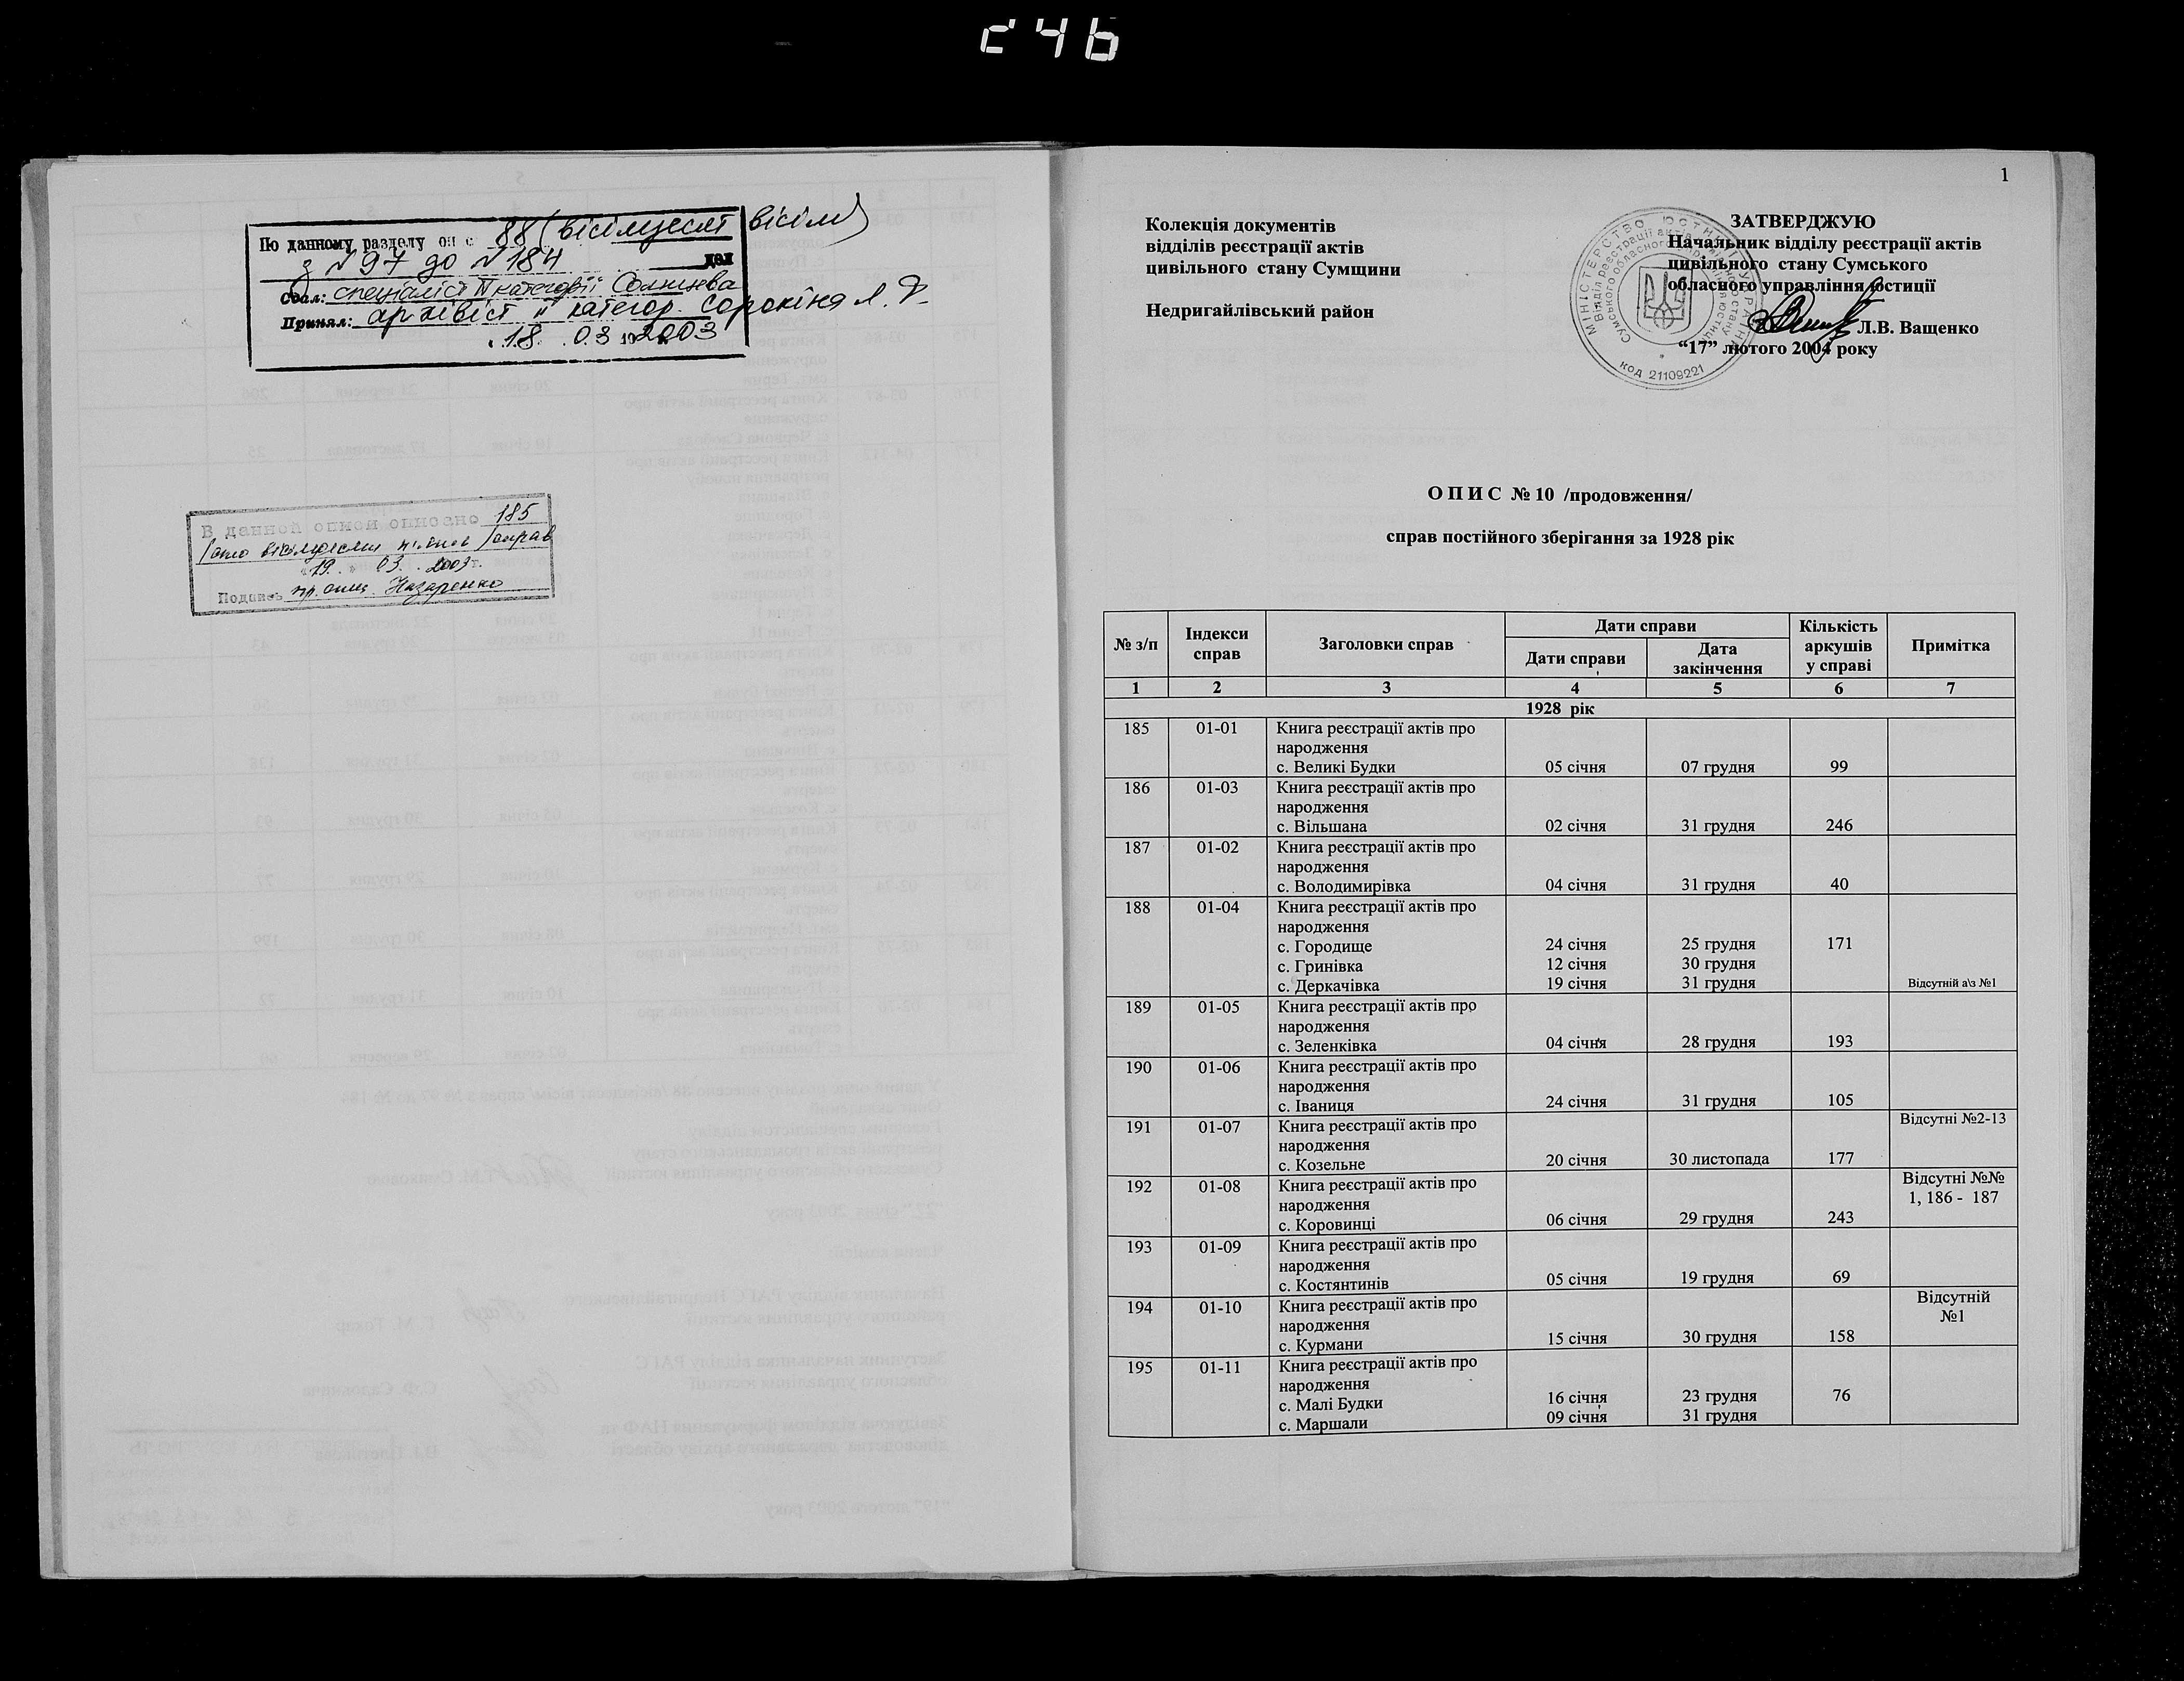 246
По данному разделу оп с 88 (вісімдесят вісім)
з №97 до №184 дел
Сдал: спеціаліст II категорії
Принял: архівіст II категор. Сорокіна Л.
18. 03 19 2003
В данной описи описано 185
/сто вісімдесят п'ять/ справ
"19. " 03. 2003 г.
Подпись Назаренко
1
Колекція документів
відділів реєстрації актів
цивільного стану Сумщини
Недригайлівський район
ЗАТВЕРДЖУЮ
Начальник відділу реєстрації актів
цивільного стану Сумського
обласного управління юстиції
Л.В. Ващенко
“17” лютого 2004 року
МІНІСТЕРСТВО ЮСТИЦІЇ УКРАЇНИ
код 21109221
О П И С № 10 /продовження/
справ постійного зберігання за 1928 рік
№ з/п Індекси справ Заголовки справ Дати справи Кількість аркушів у справі Примітка
Дати справи Дата закінчення
1 2 3 4 5 6 7
1928 рік
185 01-01 Книга реєстрації актів про
народження
с. Великі Будки 05 січня 07 грудня 99
186 01-03 Книга реєстрації актів про
народження
с. Вільшана 02 січня 31 грудня 246
187 01-02 Книга реєстрації актів про
народження
с. Володимирівка 04 січня 31 грудня 40
188 01-04 Книга реєстрації актів про
народження
с. Городище 24 січня 25 грудня 171
с. Гринівка 12 січня 30 грудня
с. Деркачівка 19 січня 31 грудня Відсутній а\з №1
189 01-05 Книга реєстрації актів про
народження
с. Зеленківка 04 січня 28 грудня 193
190 01-06 Книга реєстрації актів про
народження
с. Іваниця 24 січня 31 грудня 105
191 01-07 Книга реєстрації актів про Відсутні №2-13
народження
с. Козельне 20 січня 30 листопада 177
192 01-08 Книга реєстрації актів про Відсутні №№
народження 1, 186 - 187
с. Коровинці 06 січня 29 грудня 243
193 01-09 Книга реєстрації актів про
народження
с. Костянтинів 05 січня 19 грудня 69
194 01-10 Книга реєстрації актів про Відсутній
народження №1
с. Курмани 15 січня 30 грудня 158
195 01-11 Книга реєстрації актів про
народження
с. Малі Будки 16 січня 23 грудня 76
с. Маршали 09 січня 31 грудня